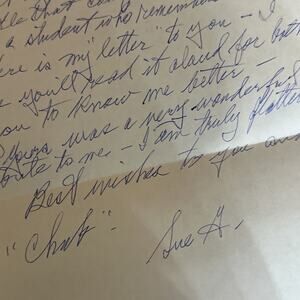 a student who remembers
ere is my "letter" to you – I
you'll read it aloud for both
you to know me better –
Yours was a very wonderful
bute to me – I am truly flatter
Best wishes to you and
"Chat"- Sue H.